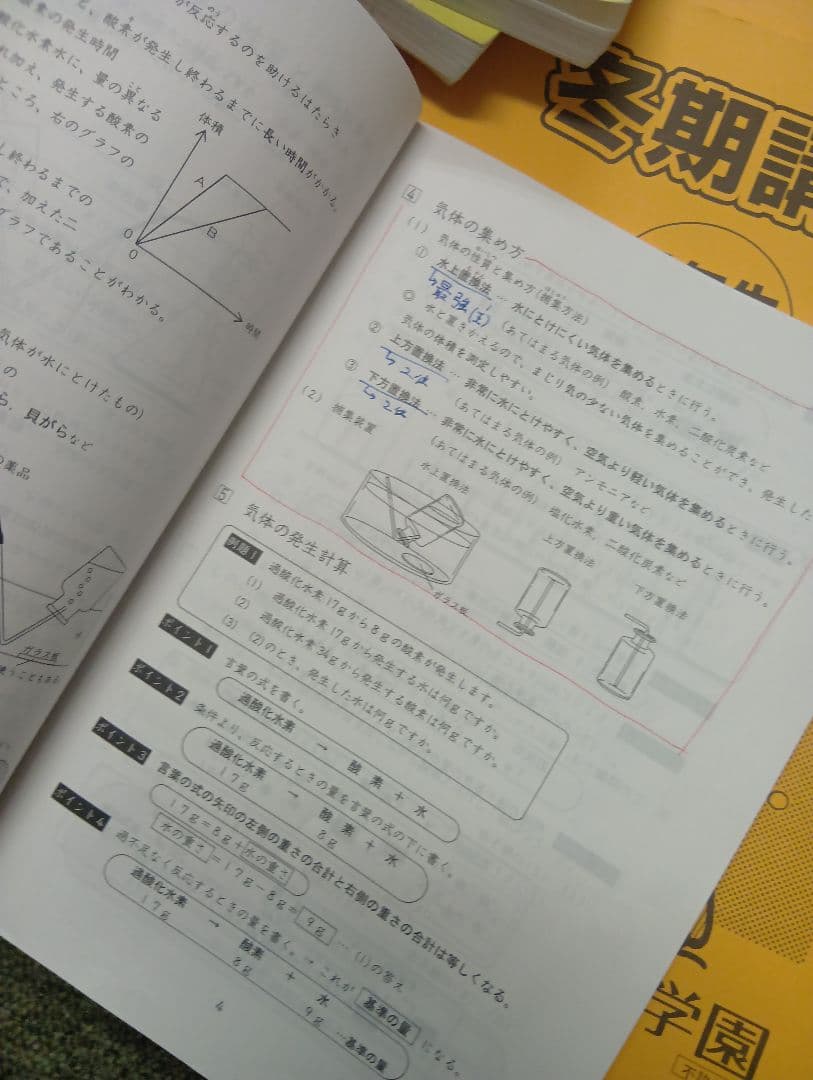 が反応するのを助けるはたらき
と、酸素が発生し終わるまでに長い時間がかかる。
酸素の発生時間
酸化水素水に、量の異なる
れ加え、発生する酸素の
ところ、右のグラフの
し終わるまでの
で、加えた二
グラフであることがわかる。
体積
A
B
0
0
時間
気体が水にとけたもの)
の
ら、貝がらなど
の薬品
ガラス板
使うこともある
4 気体の集め方
(1) 気体の性質と集め方(捕集方法)
① 水上置換法 … 水にとけにくい気体を集めるときに行う。
↳最強(1)
(あてはまる気体の例) 酸素、水素、二酸化炭素など
◎ 水と置きかえるので、まじり気の少ない気体を集めることができ、発生した
気体の体積を測定しやすい。
② 上方置換法 … 非常に水にとけやすく、空気より軽い気体を集めるときに行う。
↳2位
(あてはまる気体の例) アンモニアなど
③ 下方置換法 … 非常に水にとけやすく、空気より重い気体を集めるときに行う。
↳2位
(あてはまる気体の例) 塩化水素、二酸化炭素など
(2) 捕集装置
水上置換法
上方置換法
下方置換法
ガラス板
5 気体の発生計算
例題1 過酸化水素17gから8gの酸素が発生します。
(1) 過酸化水素17gから発生する水は何gですか。
(2) 過酸化水素34gから発生する酸素は何gですか。
(3) (2)のとき、発生した水は何gですか。
ポイント1 言葉の式を書く。
過酸化水素 → 酸素 + 水
ポイント2 条件より、反応するときの量を言葉の式の下に書く。
過酸化水素 → 酸素 + 水
17g 8g
ポイント3 言葉の式の矢印の左側の重さの合計と右側の重さの合計は等しくなる。
17g=8g+水の重さ
水の重さ=17g-8g=9g …(1)の答え
ポイント4 過不足なく反応するときの量を書く。→ これが基準の量になる。
過酸化水素 → 酸素 + 水
17g 8g 9g …基準の量
4
冬期講
学園